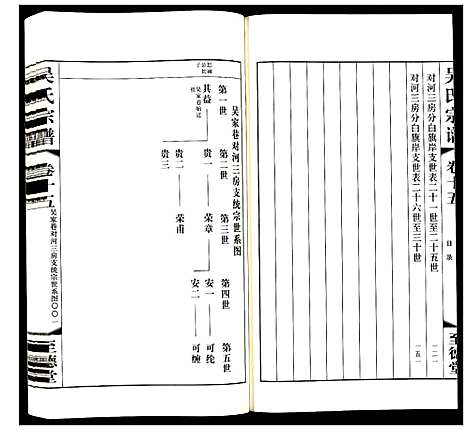 吴氏宗谱
卷十五
目录
至德堂
对河三房分白旗岸支世表二十一世至二十五世
一二一
对河三房分白旗岸支世表二十六世至三十世
一五一
吴家巷对河三房支统宗世系图
第一世
第二世
第三世
第四世
第五世
其益
贵一
荣章
安一
可纶
吴家巷始迁
安二
可缠
贵二
荣甫
贵三
吴氏宗谱
卷十五
吴家巷对河三房支统宗世系图
〇〇一
至德堂